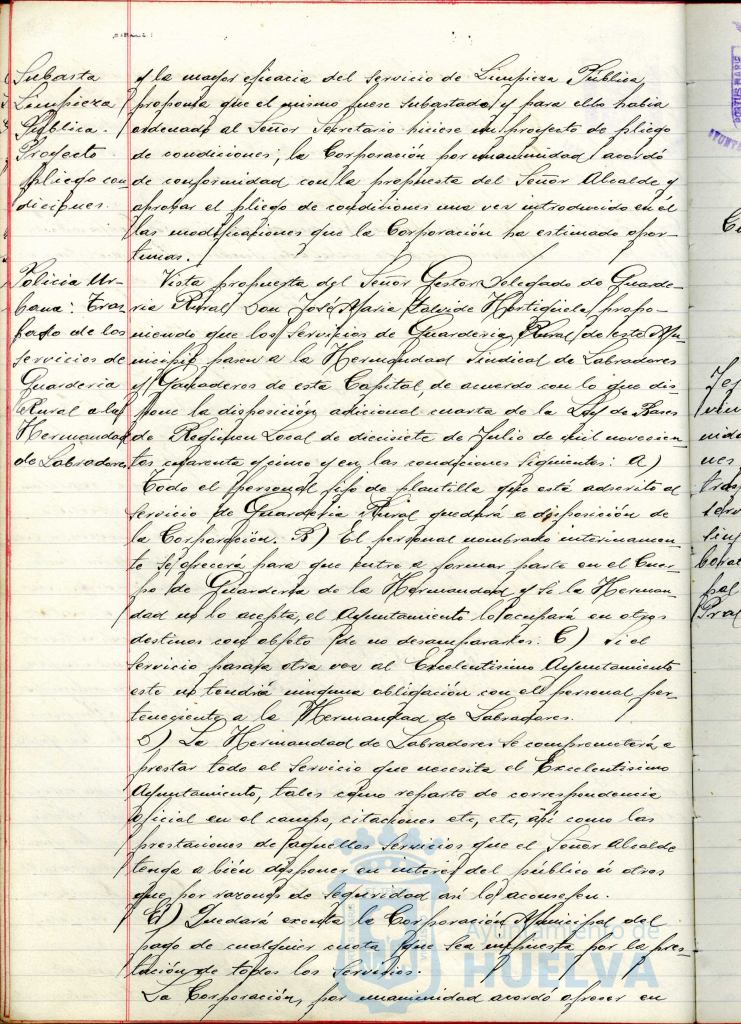 Subasta
Limpieza
Pública.
Proyecto
pliego con-
diciones.
y la mayor eficacia del servicio de Limpieza Pública,
proponia que el mismo fuese subastado, y para ello habia
ordenado al Señor Secretario hiciese un proyecto de pliego
de condiciones; la Corporación por unanimidad acordó
de conformidad con la propuesta del Señor Alcalde y
aprobar el pliego de condiciones una vez introducido en él
las modificaciones que la Corporación ha estimado opor-
tunas.
Policia Ur-
bana: Tras-
pado de los
servicios de
Guarderia
Rural a la
Hermandad
de Labradores
Vista propuesta del Señor Gestor Delegado de Guarde-
ria Rural Don José Maria Hortigüela propo-
niendo que los servicios de Guarderia Rural de este Mu-
nicipio pasen a la Hermandad Sindical de Labradores
y Ganaderos de esta Capital, de acuerdo con lo que dis-
pone la disposición adicional cuarta de la Ley de Bases
de Regimen Local de diecisiete de Julio de mil novecien-
tos cuarenta y cinco y en las condiciones siguientes: A)
Todo el personal fijo de plantilla que está adscrito al
servicio de Guarderia Rural quedará a disposición de
la Corporación. B) El personal nombrado interinamen-
te se ofrecerá para que entre a formar parte en el Cuer-
po de Guarderia de la Hermandad y si la Herman-
dad no lo acepta, el Ayuntamiento lo ocupará en otros
destinos con objeto de no desampararles. C) si el
servicio pasara otra vez al Excelentisimo Ayuntamiento
este no tendrá ninguna obligación con el personal per-
teneciente a la Hermandad de Labradores.
D) La Hermandad de Labradores se comprometerá a
prestar todo el servicio que necesita el Excelentisimo
Ayuntamiento, tales como reparto de correspondencia
oficial en el campo, citaciones etc, etc, asi como las
prestaciones de aquellos servicios que el Señor Alcalde
tenga a bién disponer en interés del público ú otros
que por razones de seguridad asi lo aconsejen.
E) Quedará exenta la Corporación Municipal del
pago de cualquier cuota que sea impuesta por la pres-
tación de todos los servicios.
La Corporación, por unanimidad acordó ofrecer en
Ayuntamiento de
HUELVA